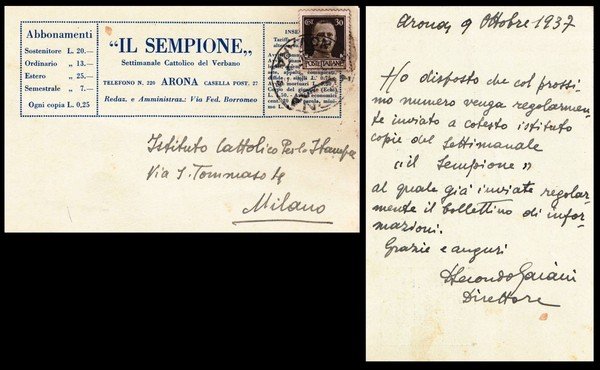 Abbonamenti
Sostenitore L. 20.—
Ordinario „ 13.—
Estero „ 25.—
Semestrale „ 7.—
Ogni copia L. 0,25
“IL SEMPIONE„
Settimanale Cattolico del Verbano
TELEFONO N. 220 ARONA CASELLA POST. 27
Redaz. e Amministraz.: Via Fed. Borromeo
POSTE ITALIANE
30
Istituto Cattolico Per la Stampa
Via S. Tommaso
Milano
Arona, 9 Ottobre 1937
Ho disposto che col prossi
mo numero venga regolarmen
te inviato a cotesto istituto
copie del Settimanale
“il Sempione”
al quale già inviate regolar
mente il bollettino di infor
mazioni.
Grazie e auguri
Direttore